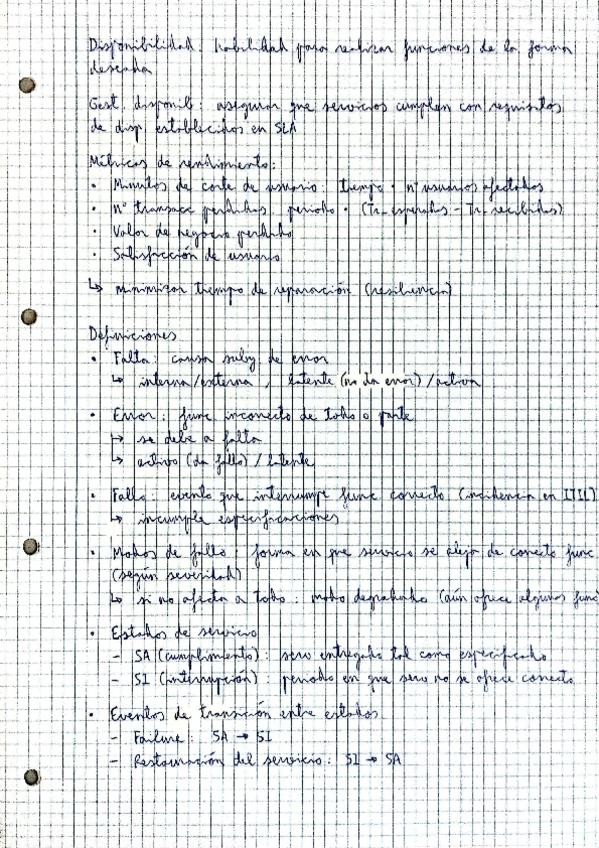 Disponibilidad: habilidad para realizar funciones de la forma
deseada
Gest. disponib: asegurar que servicios cumplen con requisitos
de disp establecidos en SLA
Métricas de rendimiento:
• Minutos de corte de usuario: tiempo · nº usuarios afectados
• nº transacc perdidas: periodo · (Tr_esperadas - Tr_recibidas)
• Valor de negocio perdido
• Satisfacción de usuario
↳ minimizar tiempo de reparación (resiliencia)
Definiciones
• Falta: causa suby de error
↳ interna/externa, latente (no da error) / activa
• Error: func incorrecto de todo o parte
↳ se debe a falta
↳ activo (da fallo) / latente
• Fallo: evento que interrumpe func correcto (incidencia en ITIL)
↳ incumple especificaciones
• Modos de fallo: forma en que servicio se aleja de correcto func
(según severidad)
↳ si no afecta a todo: modo degradado (aún ofrece algunas func
• Estados de servicio
- SA (cumplimiento): serv entregado tal como especificado
- SI (interrupción): periodo en que serv no se ofrece correcto
• Eventos de transición entre estados
- Failure: SA → SI
- Restauración del servicio: SI → SA